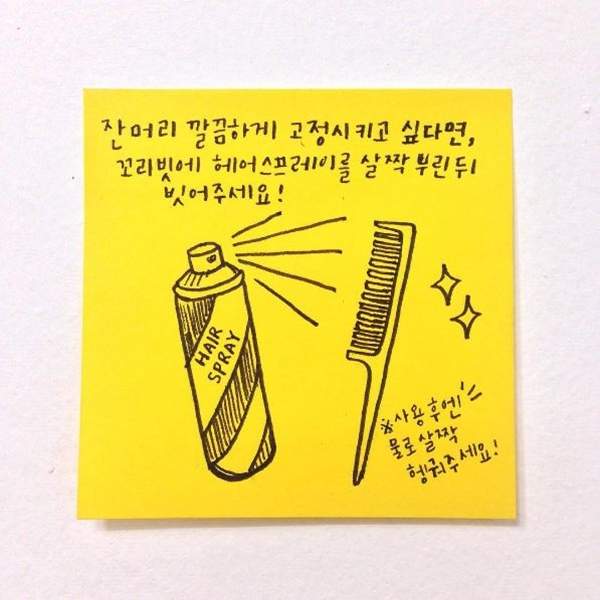 잔머리 깔끔하게 고정시키고 싶다면,
꼬리빗에 헤어스프레이를 살짝 뿌린 뒤
빗어주세요!
HAIR
SPRAY
※사용 후엔
물로 살짝
헹궈주세요!